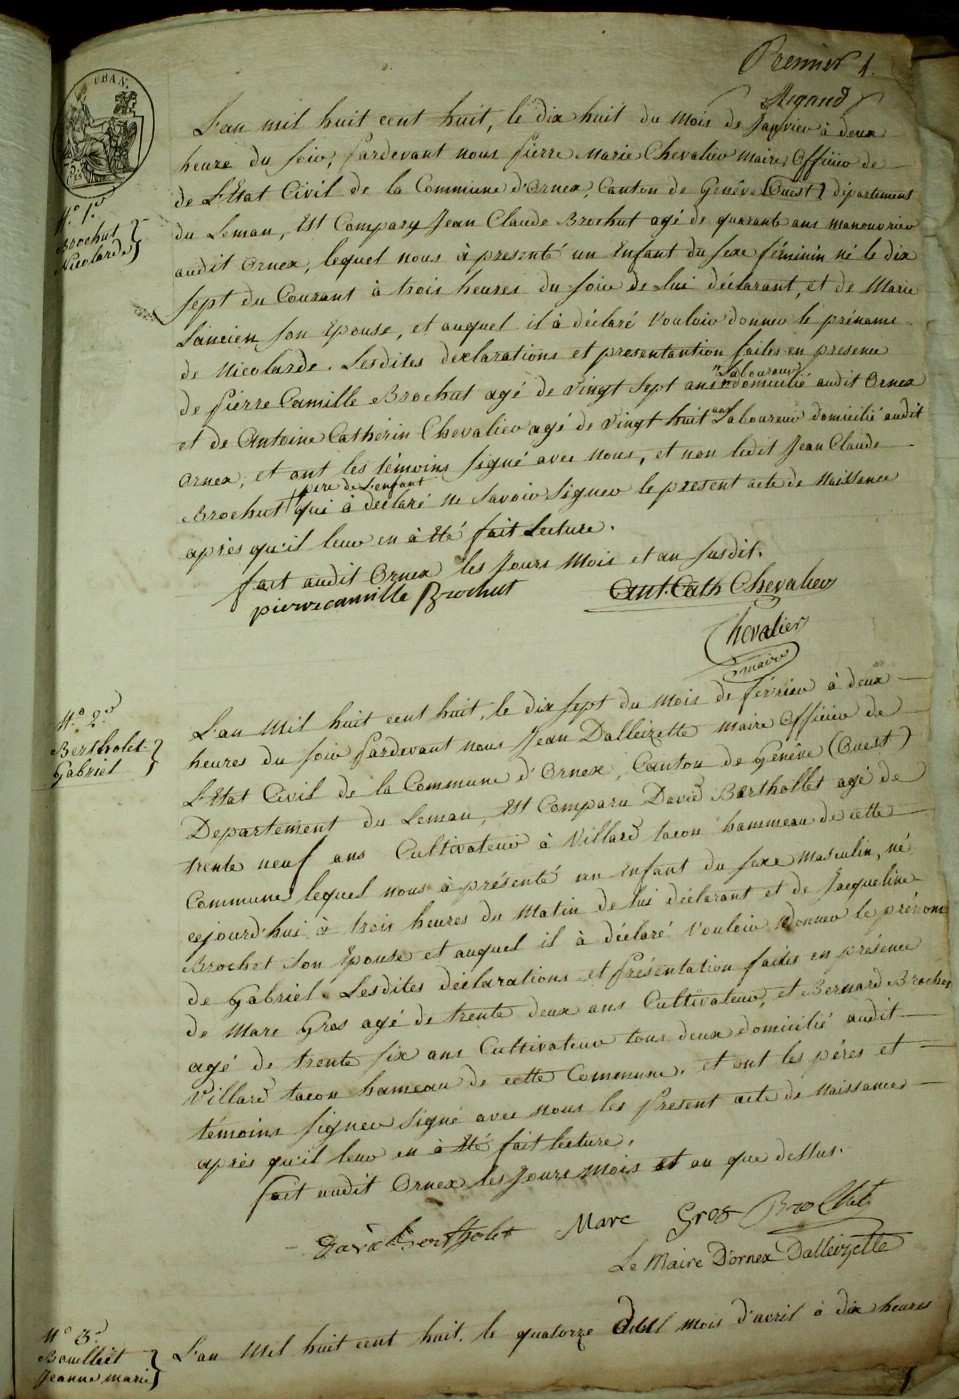 Premier 1.
Rigaud
L'an mil huit cent huit, le dix huit du mois de Janvier à deux
heure du soir, Pardevant nous Pierre Marie Chevalier maire, officier de
de L'Etat Civil de la Commune d'Ornex, Canton de Genêve (Ouest) département
N.o 1.er
Brochut
Nicolarde
du Leman, Est Comparu Jean Claude Brochut agé de quarante ans manouvrier
audit Ornex, lequel nous à présenté un Enfant du sexe féminin né le dix
sept du Courant à trois heures du soir de Lui déclarant, et de Marie
Lancien son Epouse, et auquel il à déclaré vouloir donner le prénoms
de Nicolarde. Lesdites déclarations et presentantion faites en presence
laboureur
de Pierre Camille Brochut agé de vingt sept ans domicilié audit Ornex
et de Antoine Catherin Chevalier agé de vingt huit ans Laboureur domicilié audit
Ornex, et ont les témoins signé avec nous, et non ledit Jean Claude
père de l'enfant
Brochut qui à déclaré ne savoir signer le présent acte de Naissance
après qu'il leur en à Eté fait Lecture.
fait audit Ornex les Jours Mois et an susdit.
pierre camille Brochut Ant. Cath Chevalier
Chevalier
maire
N.o 2.e
Bertholet
Gabriel
L'an Mil huit cent huit, le dix sept du mois de février à deux
heures du soir Pardevant nous Jean Dalleizette maire officier de
L'Etat Civil de la Commune d'Ornex, Canton de Genêve (Ouest)
Departement du Leman, Est Comparu David Barthollet agé de
trente neuf ans Cultivateur à Villard tacon hammeau de cette
Commune lequel nous à présenté un Enfant du sexe Masculin, né
cejourd'hui à trois heures du Matin de lui déclarant et de Jacqueline
Brochet son Epouse et auquel il à déclaré vouloir donner le prénom
de Gabriel. Lesdites déclarations et Présentation faites en présence
de Marc Gros agé de trente deux ans Cultivateur, et Bernard Brochet
agé de trente six ans Cultivateur tous deux domicilié audit
Villard tacon hameau de cette Commune, et ont les péres et
témoins signer signé avec nous les Present acte de Naissances
après qu'il leur en à Eté fait lecture.
fait audit Ornex les Jours Mois et an que dessus.
David Bertholet Marc Gros Brochet
Le Maire D'ornex Dalleizette
N.o 3.e
Bouilliet
Jeanne marie
L'an Mil huit cent huit, le quatorze du mois d'avril à dix heures